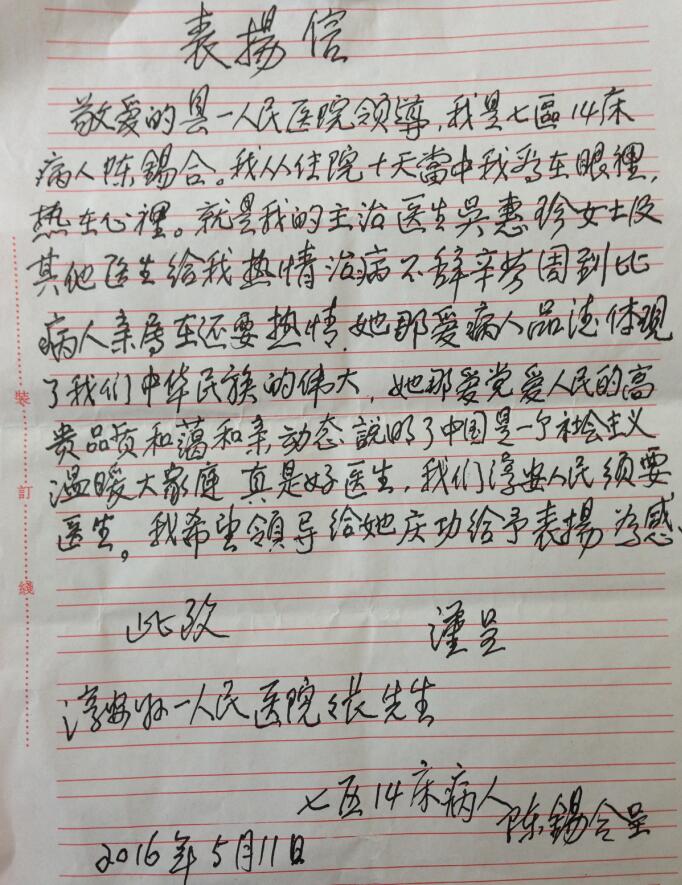 表揚信
敬爱的县一人民医院领導,我是七區14床
病人陈錫合。我从住院十天當中我看在眼裡,
热在心裡。就是我的主治医生吳惠珍女士及
其他医生给我热情治病不辞辛劳周到比
病人亲属在还要热情.她那爱病人品德体现
了我们中华民族的伟大,她那爱党爱人民的高
贵品质和蔼和亲动态説明了中国是一个社会主义
温暖大家庭 真是好医生,我们淳安人民须要
医生。我希望領导给她庆功给予表揚為感.
此致 谨呈
淳安县一人民医院张先生
七区14床病人
陈錫合呈
2016年5月11日
裝
訂
綫